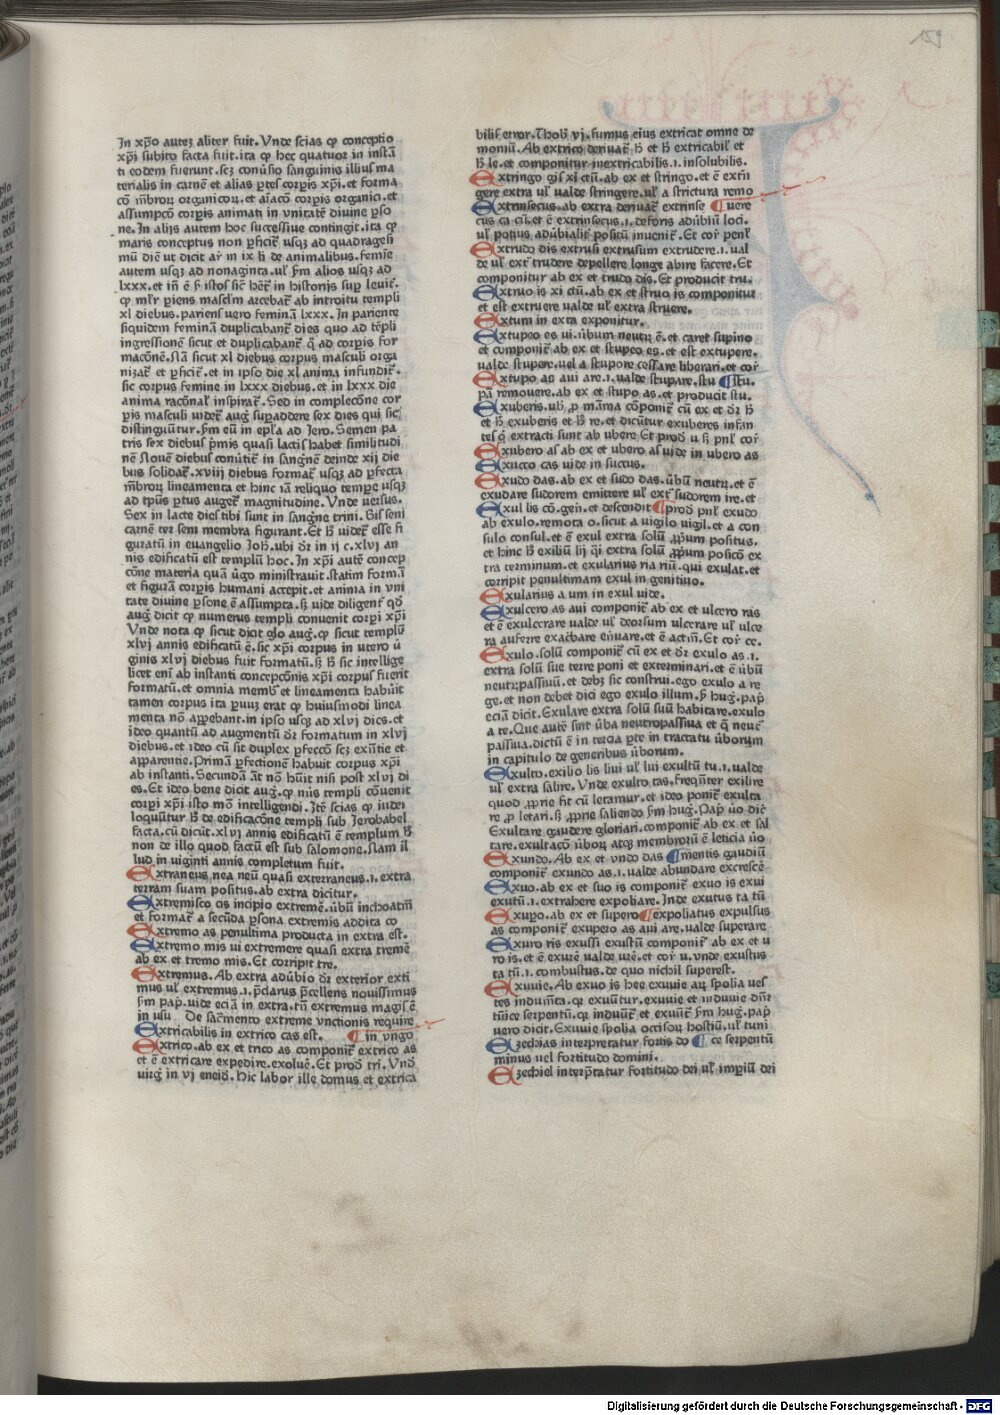 159
In xp̄o autez aliter fuit. Vnde scias ꝙ conceptio
xp̄i subito facta fuit. ita ꝙ hec quatuor in instā
ti eodem fuerunt. scz conūsio sanguinis illius ma
terialis in carnē et alias ꝑtes corꝑis xp̄i. et forma
cō mb̄roꝝ organicoꝝ. et aīacō corꝑis organici. et
assumpcō corꝑis animati in vnicatē diuine ꝑso
ne. In alijs autem hoc successiue contingit. ita ꝙ
maris conceptus non ꝑficit̄ usqꝫ ad quadragesi
mū diē ut dicit ar̄ in ix li de animalibus. femie
autem usqꝫ ad nonaginta. ul̄ ẜm alios usqꝫ ad
lxxx. et
ꝙ ml̄r ꝑiens masclm̄ arcebat̄ ab introitu templi
xl diebus. pariens uero feminā lxxx. In pariente
siquidem feminā duplicabant̄ dies quo ad tēpli
ingressionē sicut et duplicabant̄ q̄ ad corꝑis for
macōnē. Nā sicut xl diebus corpus masculi orga
nizat̄ et ꝑficit̄. et in ipso die xl anima infundit̄.
sic corpus femine in lxxx diebus. et in lxxx die
anima racōnal̄ inspirat̄. Sed in complecōne cor
ꝑis masculi uidet̄ auḡ suꝑaddere sex dies qui sic
distinguūtur. ẜm eū in epl̄a ad Iero. Semen pa
tris sex diebus p̄mis quasi lactis habet similitudi
nē Nouē diebus conūtit̄ in sangnē deinde xij die
bus solidat̄. xviij diebus format̄ usqꝫ ad ꝑfecta
mb̄roꝝ lineamenta et hinc iā reliquo tempe usqꝫ
ad tp̄us ꝑtus auget̄ magnitudine. Vnde uersus.
Sex in lacte dies tibi sunt in sangne trini. Bis seni
carnē ter seni membra figurant. Et ħ uidet̄ esse fi
guratū in euangelio Joh̄. ubi dr̄ in ij c. xlvj an
nis edificatū est templū hoc. In xp̄i autē concep
cōne materia quā ūgo ministrauit. statim formā
et figurā corꝑis humani accepit. et anima in vni
tate diuine ꝑsone ē assumpta. ẜ uide diligent̄ qd̄
auḡ dicit ꝙ numerus templi conuenit corꝑi xp̄i
Vnde nota ꝙ sicut dicit glo auḡ. ꝙ sicut templū
xlvj annis edificatū ē. sic xp̄i corpus in utero ū
ginis xlvj diebus fuit formatū. ẜ ħ sic intellige
licet enī ab instanti concepcōnis xp̄i corpus fuerit
formatū. et omnia memb̄ et lineamenta habuit
tamen corpus ita ꝑuuz erat ꝙ huiusmodi linea
menta nō apꝑebant. in ipso usqꝫ ad xlvj dies. et
ideo quantū ad augmentū dr̄ formatum in xlvj
diebus. et ideo cū sit duplex ꝑfeccō scz exn̄tie et
apparentie. Primā ꝑfectionē habuit corpus xp̄i
ab instanti. Secundā āt nō hūit nisi post xlvj di
es. Et ideo bene dicit auḡ. ꝙ niis templi cōuenit
corꝑi xp̄i isto mō intelligendi. Itē scias ꝙ iudei
loquūtur ħ de edificacōne templi sub Ierobabel
facta. cū dicūt. xlvj annis edificatū ē templum ħ
non de illo quod factū est sub salomone. Nam il
lud in uiginti annis completum fuit.
Extraneus nea neū quasi exterraneus. i. extra
terram suam positus. ab extra dicitur.
Extremisco cis incipio extremē. ūbū inchoatiū
et format̄ a secūda ꝑsona extremis addita co
Extremo as penultima producta in extra est.
Extremo mis ui extremere quasi extra tremē
ab ex et tremo mis. Et corripit tre.
Extremus. Ab extra adūbio dr̄ exterior exti
mus ul̄ extremus. i. p̄clarus p̄cellens nouissimus
ẜm pap̄. uide eciā in extra. tn̄ extremus magis ē
in usu De sac̄mento extreme vnctionis require
Extricabilis in extrico cas est. ¶ in vngo
Extrico. ab ex et trico as componit̄ extrico as
et ē extricare expedire. exoluē. Et prod̄ tri. Vnd̄
uirḡ in vj eneid̄. Hic labor ille domus et extrica
bilis error. Thob̄ vj. fumus eius extricat omne de
moniū. Ab extrico deriuat̄ ħ et ħ extricabil̄ et
ħ le. et componitur inextricabilis. i. insolubilis.
Extringo gis xi ctū. ab ex et stringo. et ē extrī
gere extra ul̄ ualde stringere. ul̄ a strictura remo
Extrinsecus. ab extra deriuat̄ extrinse ¶ uere
cus ca cū. et ē extrinsecus. i. deforis adūbiū loci.
ul̄ potius adūbialit̄ positū inuenit̄. Et cor̄ penl̄
Extrudo dis extrusi extrusum extrudere. i. ual
de ul̄ ext̄ trudere depellere longe abire facere. Et
componitur ab ex et trudo dis. Et producit tru.
Extruo is xi ctū. ab ex et struo is componitur
et est extruere ualde ul̄ extra struere.
Extum in exta exponitur.
Extupeo es ui. ūbum neutꝝ ē. et caret supino
et componit̄ ab ex et stupeo es. et est extupere.
ualde stupere. uel a stupore cessare liberari. et cor̄
Extupo as aui are. i. ualde stupare. stu ¶ stu.
pā remouere. ab ex et stupo as. et producit stu.
Exuberis. ub̄ ꝓ māma cōponit̄ cū ex et dr̄ ħ
et ħ exuberis et ħ re. et dicūtur exuberes infan
tes q̄ extracti sunt ab ubere Et prod̄ u ẜ pnl̄ cor̄
Exubero as ab ex et ubero as uide in ubero as
Exucco cas uide in succus.
Exudo das. ab ex et sudo das. ūbū neutꝝ. et ē
exudare sudorem emittere ul̄ ext̄ sudorem ire. et
Exul lis cō. gen̄. et descendit ¶ prod̄ pnl̄ exudo
ab exulo. remota o. sicut a uigilo uigil. et a con
sulo consul. et ē exul extra solū ꝓprium positus.
et hinc ħ exiliū lij q̄i extra solū ꝓprium posicō ex
tra terminum. et exularius ria riū. qui exulat. et
corripit penultimam exul in genitiuo.
Exularius a um in exul uide.
Exulcero as aui componit̄ ab ex et ulcero ras
et ē exulcerare ualde ul̄ deorsum ulcerare ul̄ ulce
ra auferre exacerbare enuare. et ē actiū. Et cor̄ ce.
Exulo. solū componit̄ cū ex et dr̄ exulo as. i.
extra solū sue terre poni et exterminari. et ē ūbū
neutꝝpassiuū. et debz sic construi. ego exulo a re
ge. et non debet dici ego exulo illum. ẜ huḡ. pap̄
eciā dicit. Exulare extra solū suū habitare. exulo
a te. Que autē sint ūba neutropassiua et q̄ neut̄
passiua. dictū ē in tercia ꝑte in tractatu ūborum
in capitulo de generibus ūborum.
Exulto. exilio lis liui ul̄ lui exultū tu. i. ualde
ul̄ extra salire. Vnde exulto tas. freq̄nter exilire
quod ꝓprie fit cū letamur. et ideo ponit̄ exulta
re ꝓ letari. ẜ ꝓprie saliendo ẜm huḡ. Pap̄ ūo dic̄
Exultare gaudere gloriari. componit̄ ab ex et sal
tare. exultacō ūboꝝ atqꝫ membroꝝ ē leticia ūo
Exundo. Ab ex et vndo das ¶ mentis gaudiū
componit̄ exundo as. i. ualde abundare excrescē
Exuo. ab ex et suo is componit̄ exuo is exui
exutū. i. extrahere expoliare. Inde exutus ta tū
Exupo. ab ex et supero ¶ expoliatus expulsus
as componit̄ exupero as aui are. ualde superare
Exuro ris exussi exustū componit̄ ab ex et u
ro is. et ē exurē ualde urē. et cor̄ u. vnde exustus
ta tū. i. combustus. de quo nichil superest.
Exuuie. Ab exuo is hee exuuie aꝝ spolia ues
tes indumīta. qꝫ exuūtur. exuuie et induuie dn̄r
tūice serpentū. qꝫ induūt̄ et exuūt̄ ẜm huḡ. pap̄
uero dicit. Exuuie spolia occisoꝝ hostiū. ul̄ tuni
Ezechias interpretatur fortis do ¶ ce serpentū
minus uel fortitudo domini.
Ezechiel interp̄tatur fortitudo dei ul̄ imꝑiū dei
Digitalisierung gefördert durch die Deutsche Forschungsgemeinschaft - DFG